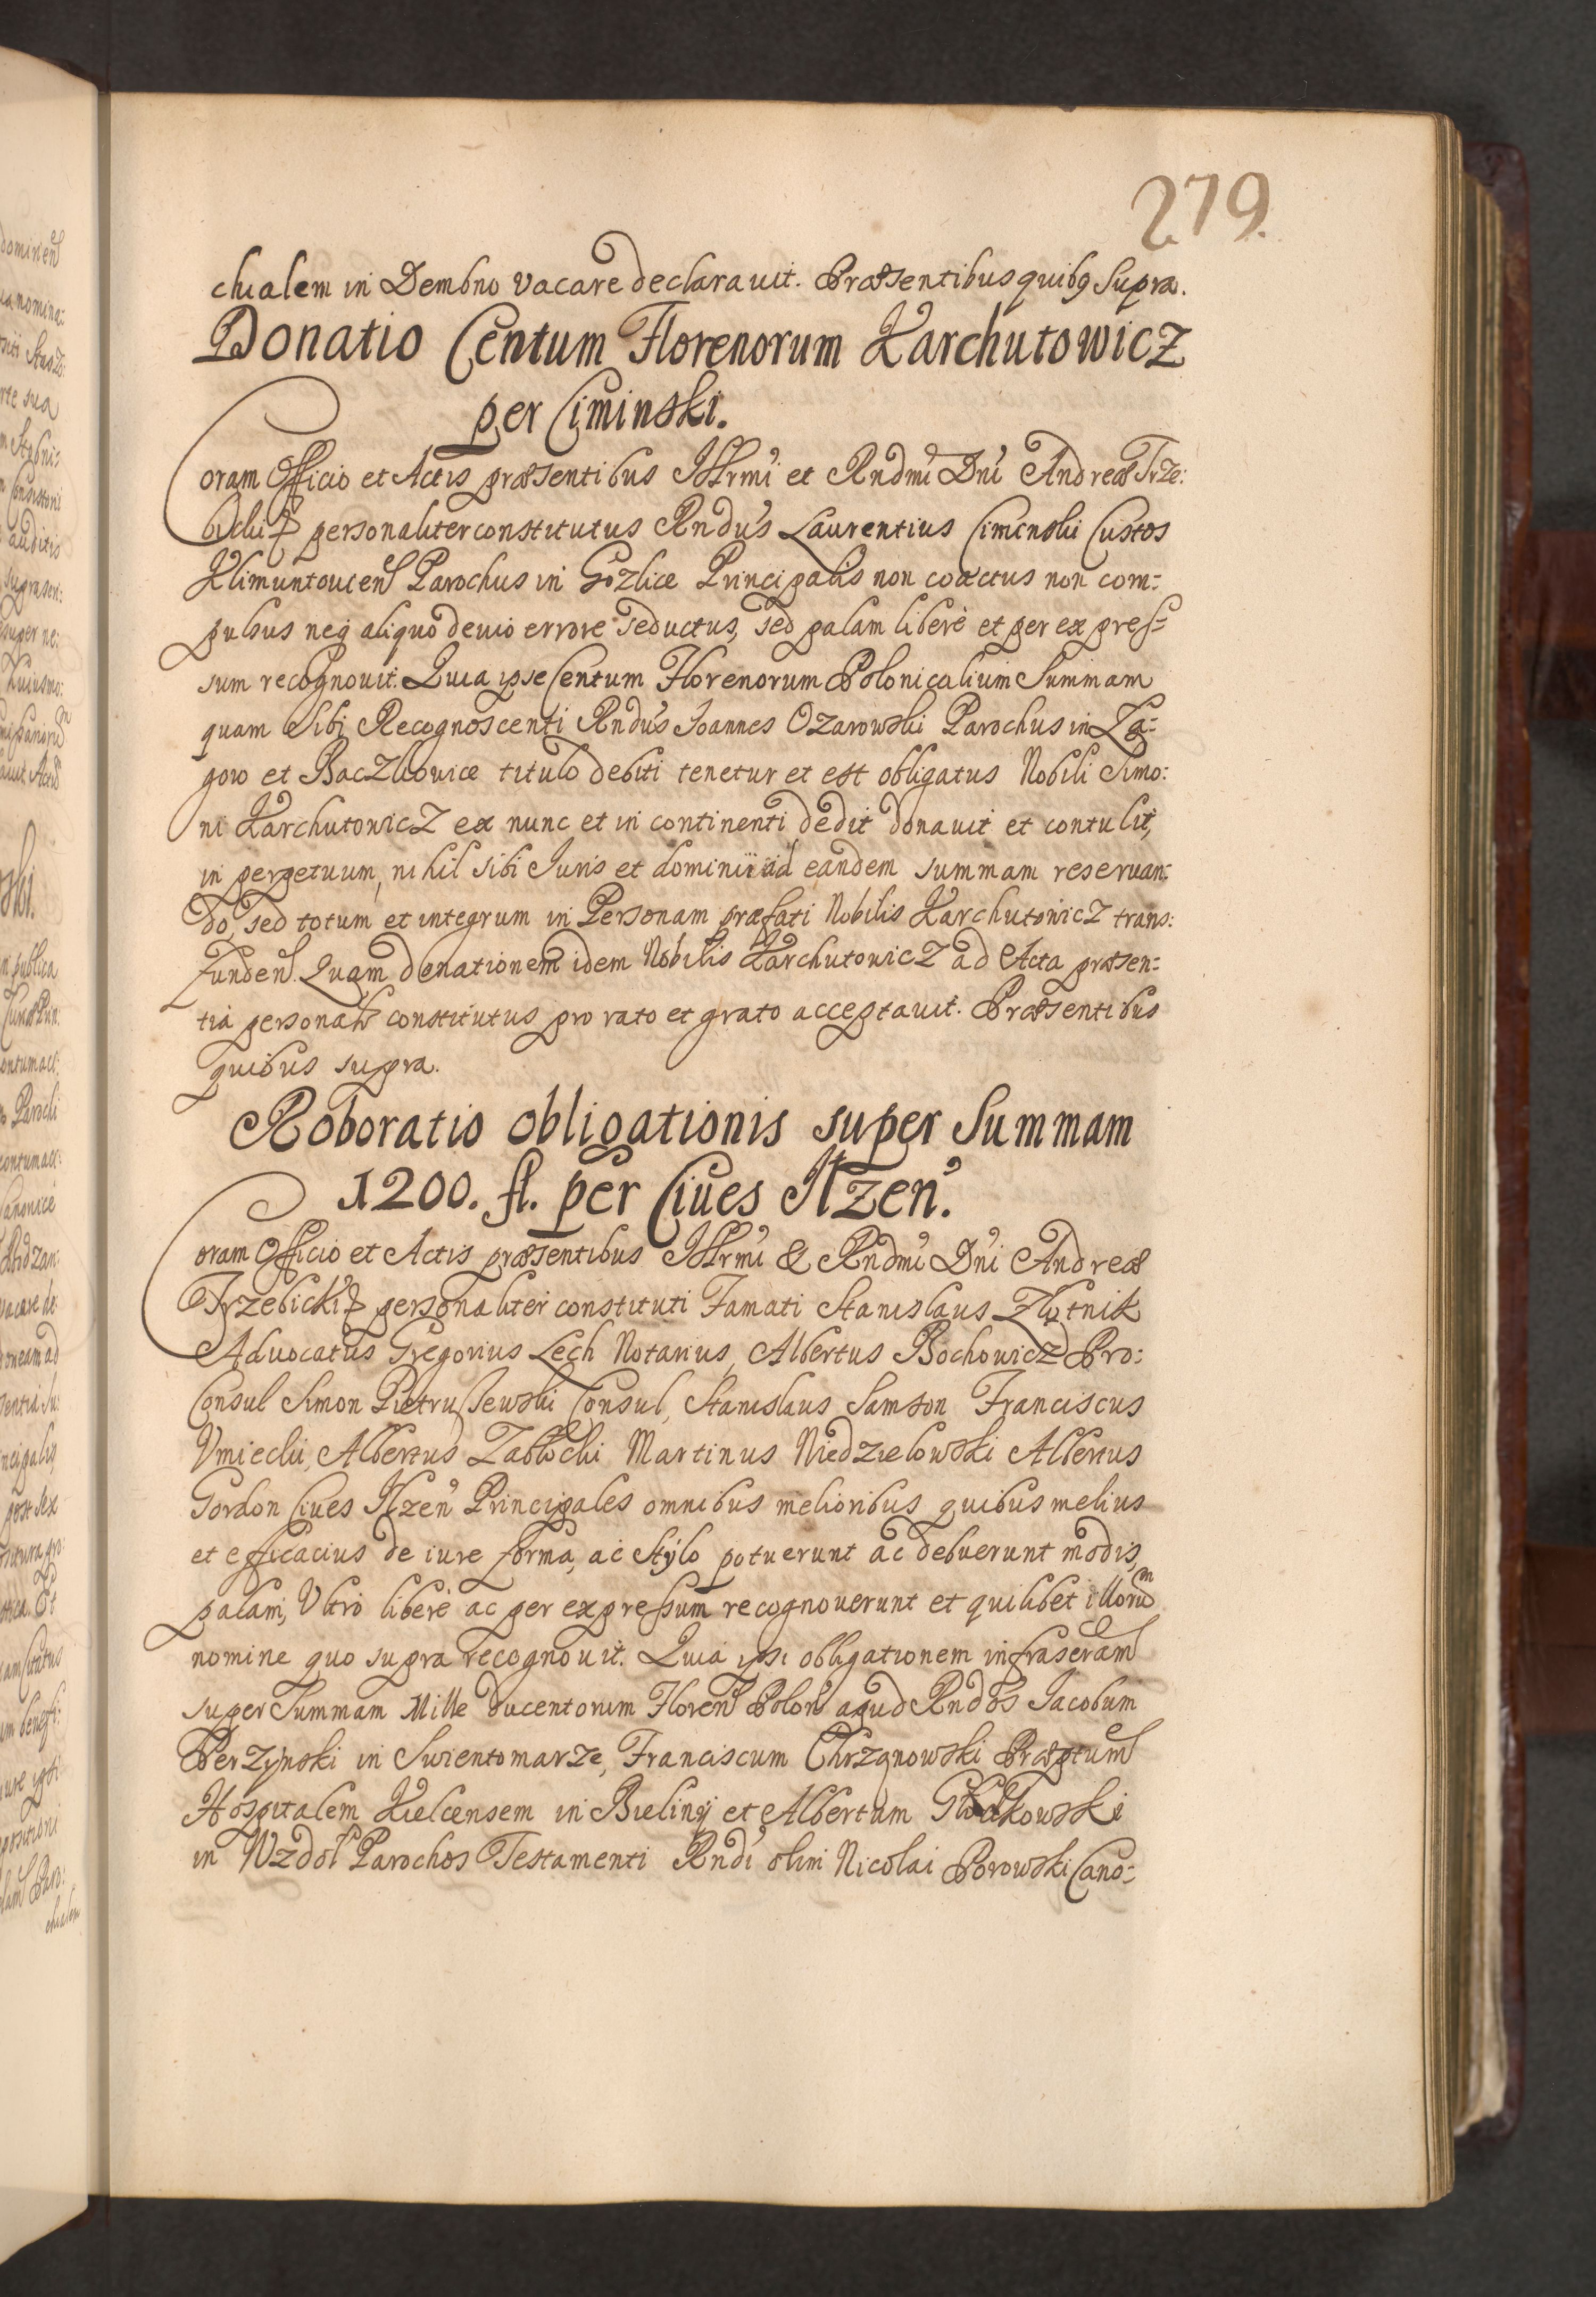 279.
chialem in Dembno vacare declarauit. Præsentibus quibq supra.
Donatio Centum Florenorum Karchutowicz
per Ciminski.
Coram Officio et Actis præsentibus Illrmi et Rndmi Dni Andreæ Trze:
bicki personaliter constitutus Rndus Laurentius Ciminski Custos
Klimuntouien Parochus in Gozlice Principalis non coactus non com:
pulsus neq aliquo deuio errore seductus, sed palam liberè et per expres=
sum recognouit. Quia ipse Centum Florenorum Polonicalium Summam
quam Sibi Recognoscenti Rndus Joannes Ozarowski Parochus in La=
gow et Baczkowice titulo debiti tenetur et est obligatus Nobili Simo:
ni Karchutowicz ex nunc et in continenti dedit donauit et contulit,
in perpetuum, nihil sibi Juris et dominii ad eandem summam reseruan:
do, sed totum et integrum in Personam præfati Nobilis Karchutowicz trans:
funden. Quam donationem idem Nobilis Karchutowicz ad Acta præsen=
tia personalr constitutus pro rato et grato acceptauit. Præsentibus
quibus supra.
Roboratio obligationis super Summam
1200. fl. per Ciues Ilzen.
Coram Officio et Actis præsentibus Illrmi & Rndmi Dni Andreæ
Trzebicki personaliter constituti Famati Stanislaus Zlotnik
Aduocatus Gregorius Lech Notarius, Albertus Bochowicz Pro:
Consul Simon Pietrussewski Consul, Stanislaus Samson Franciscus
Vmiecki, Albertus Zablocki Martinus Niedzielowski Albertus
Gordon Ciues Ilzen Principales omnibus melioribus quibus melius
et efficacius de iure forma, ac Stylo potuerunt ac debuerunt modis,
palam, Vltro liberè ac per expressum recognouerunt et quilibet illorum
nomine quo supra recognouit. Quia ipsi obligationem infraseram
super Summam Mille ducentorum Floren Polon apud Rndos Jacobum
Perzynski in Swientomarze, Franciscum Chrzanowski Præptum
Hospitalem Kielcensem in Bieliny et Albertum
in Wzdol Parochos Testamenti Rndi olim Nicolai Borowski Cano=